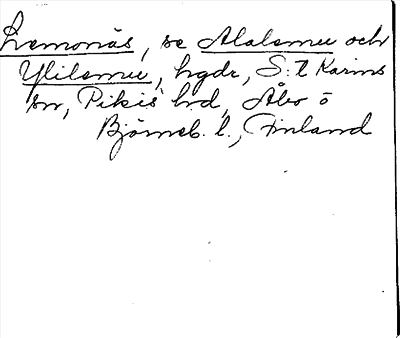 Lemonäs, se Alalemu och
Ylilemu, hgdr, S:t Karins
sn, Pikis hd, Åbo o
Björneb. l., Finland